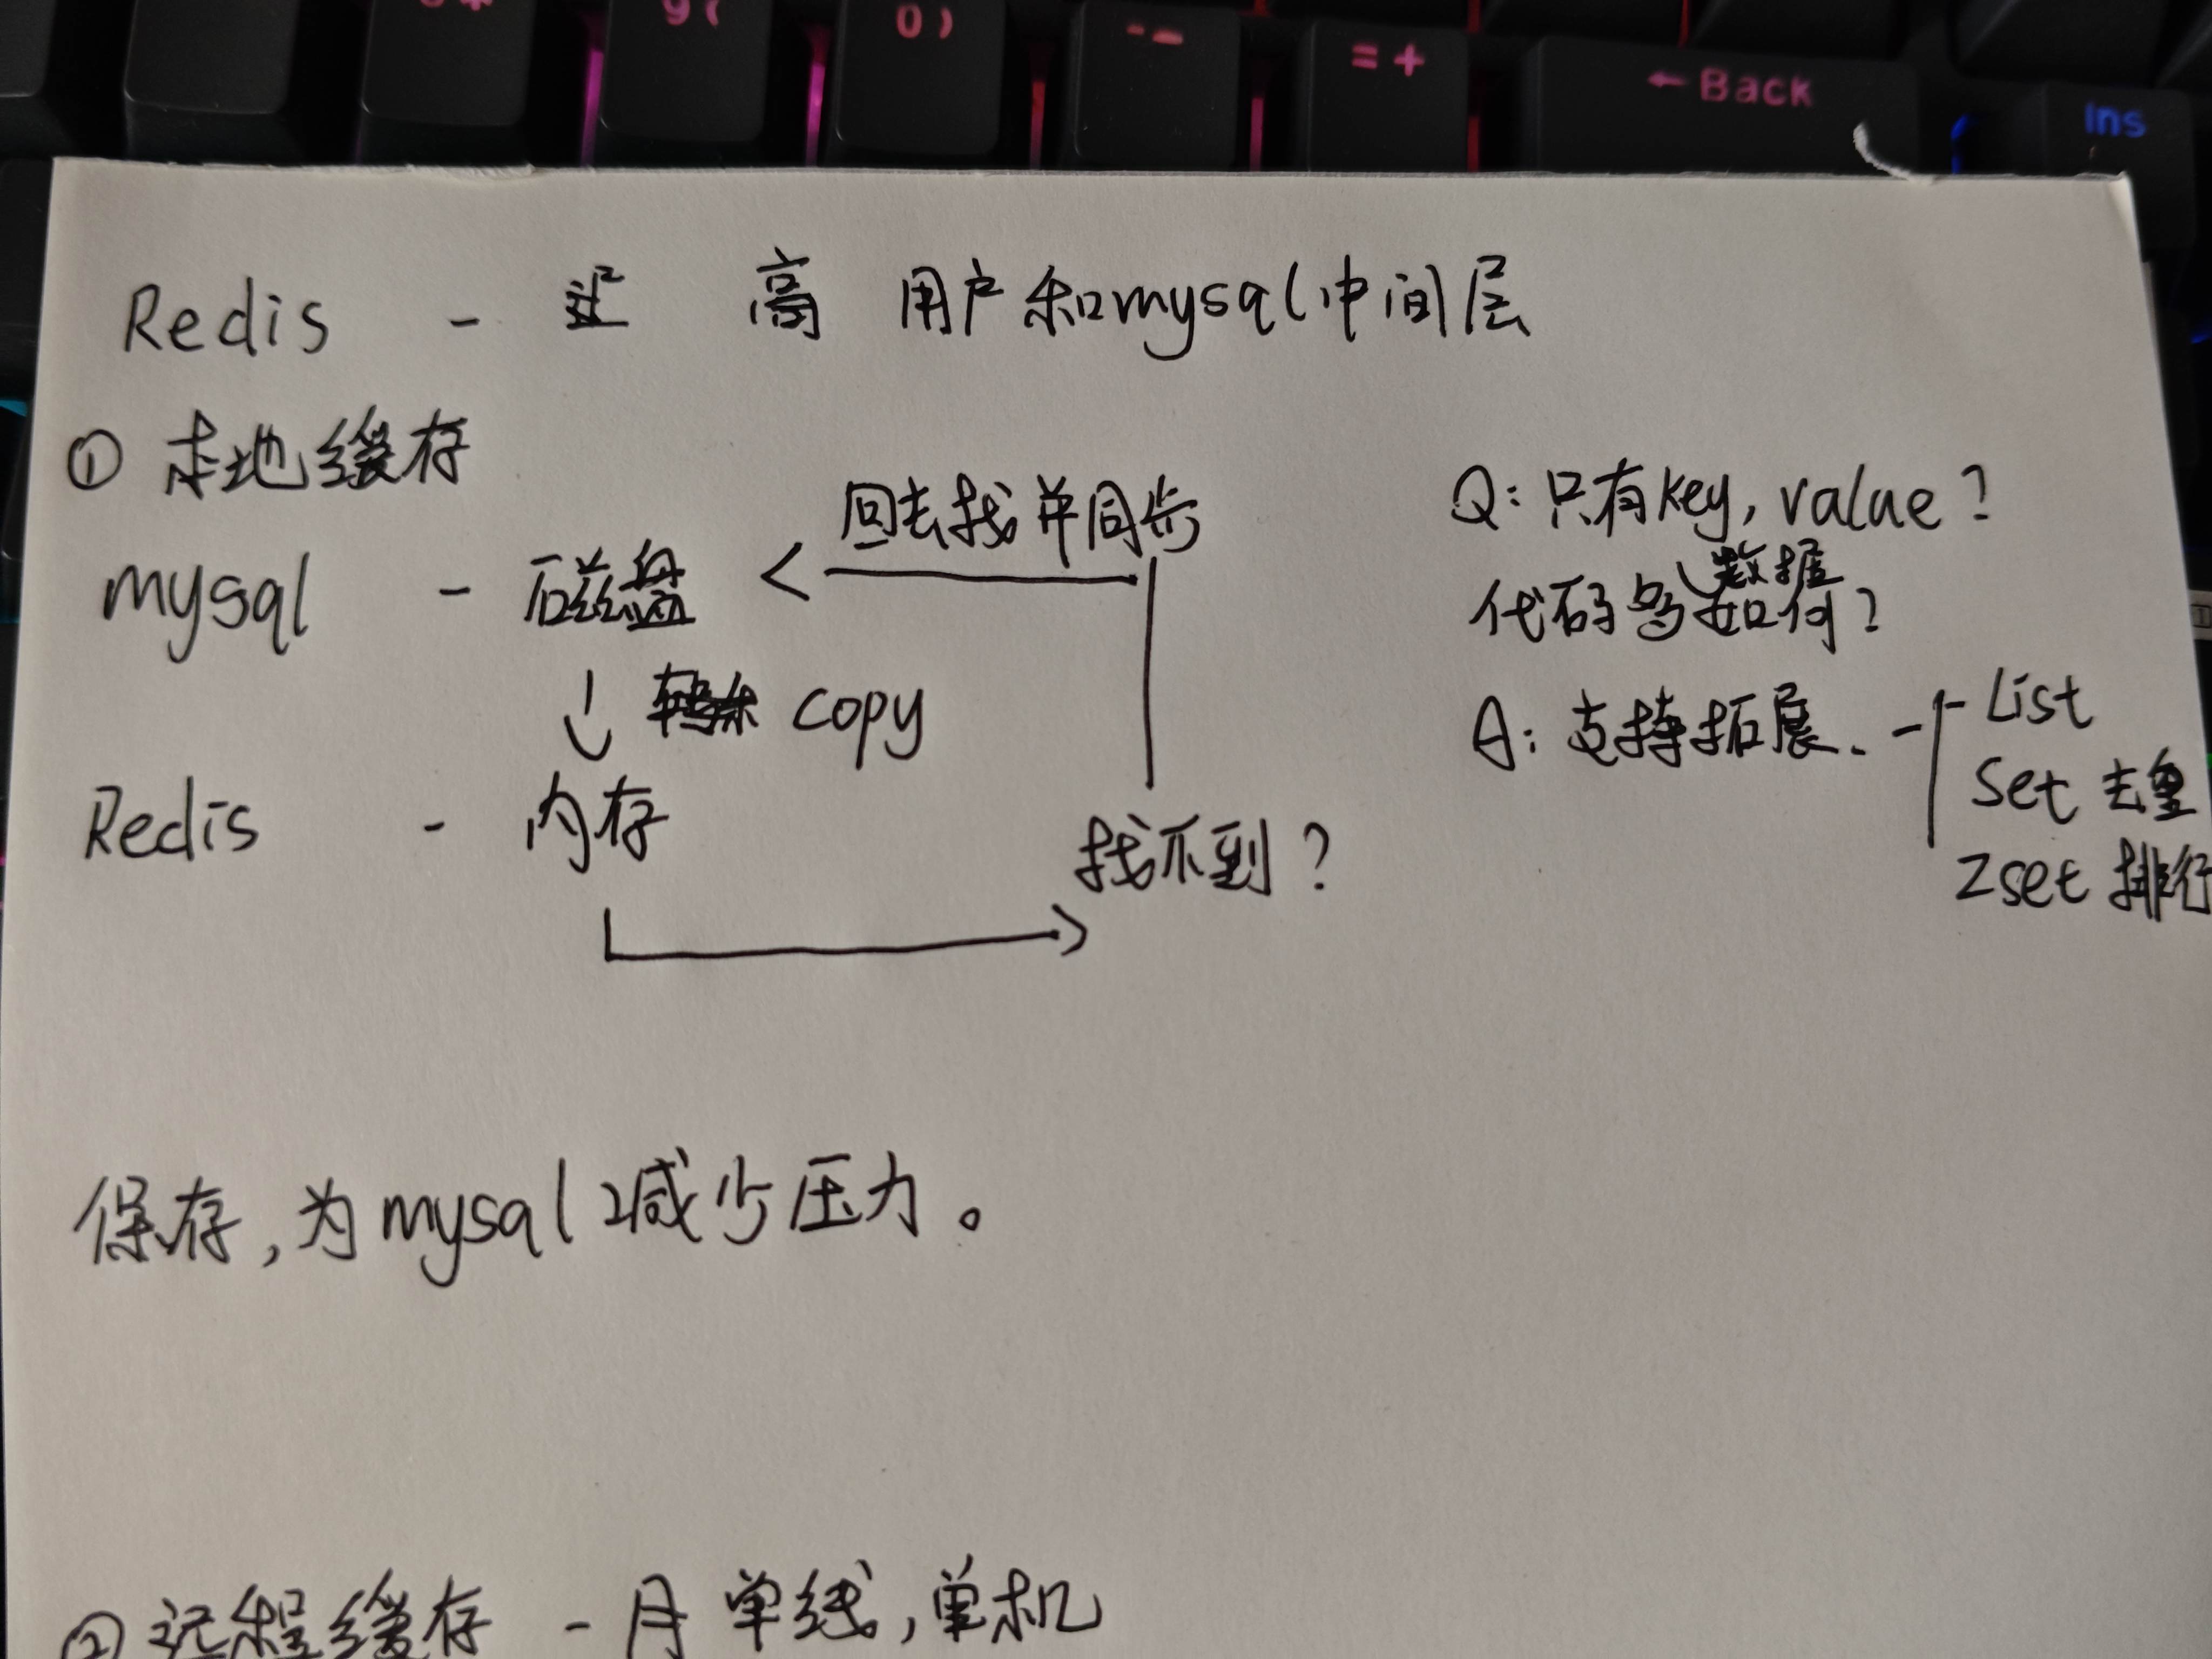 9(
0)
--
=+
←Back
Ins
Redis - 高 用户和mysql中间层
① 本地缓存
回去找并同步
mysql - 磁盘 <
↓ copy
Redis - 内存
找不到？
Q: 只有key, value？
数据
代码 如何？
A: 支持拓展. - List
Set 去重
Zset 排行
保存,为mysql减少压力。
② 远程缓存 - 单线,单机